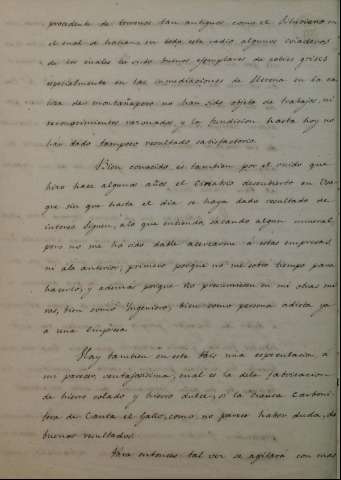 procedente de terrenos tan antiguos como el Siluriano en
el cual se hallan en todo este radio algunos criaderos
de los cuales he visto buenos ejemplares de cobres grises
especialmente en las inmediaciones de Llerena en la ca
liza de montaña pero no han sido objeto de trabajos ni
reconocimientos razonados y la fundicion hasta hoy no
han dado tampoco resultado satisfactorio.
Bien conocido es tambien por el ruido que
hizo hace algunos años el descubierto en
que sin que hasta el dia se haya dado resultado de
interes siguen, a lo que entiendo sacando algun mineral
pero no me ha sido dable acercarme á estas empresas
ni á la anterior; primero porque no me sobró tiempo para
hacerlo, y además porque no presumiesen en mi otras mi
ras, bien como Ingeniero, bien como persona adicta ya
á una empresa.
Hay tambien en este País una esplotacion, á
mi parecer, ventajosisima, cual es la de la fabricacion
de hierro colado y hierro dulce, si la Cuenca Carboni
fera de Canta el Gallo, como no parece haber duda, da
buenos resultados.
Para entonces tal vez se agitará con mas